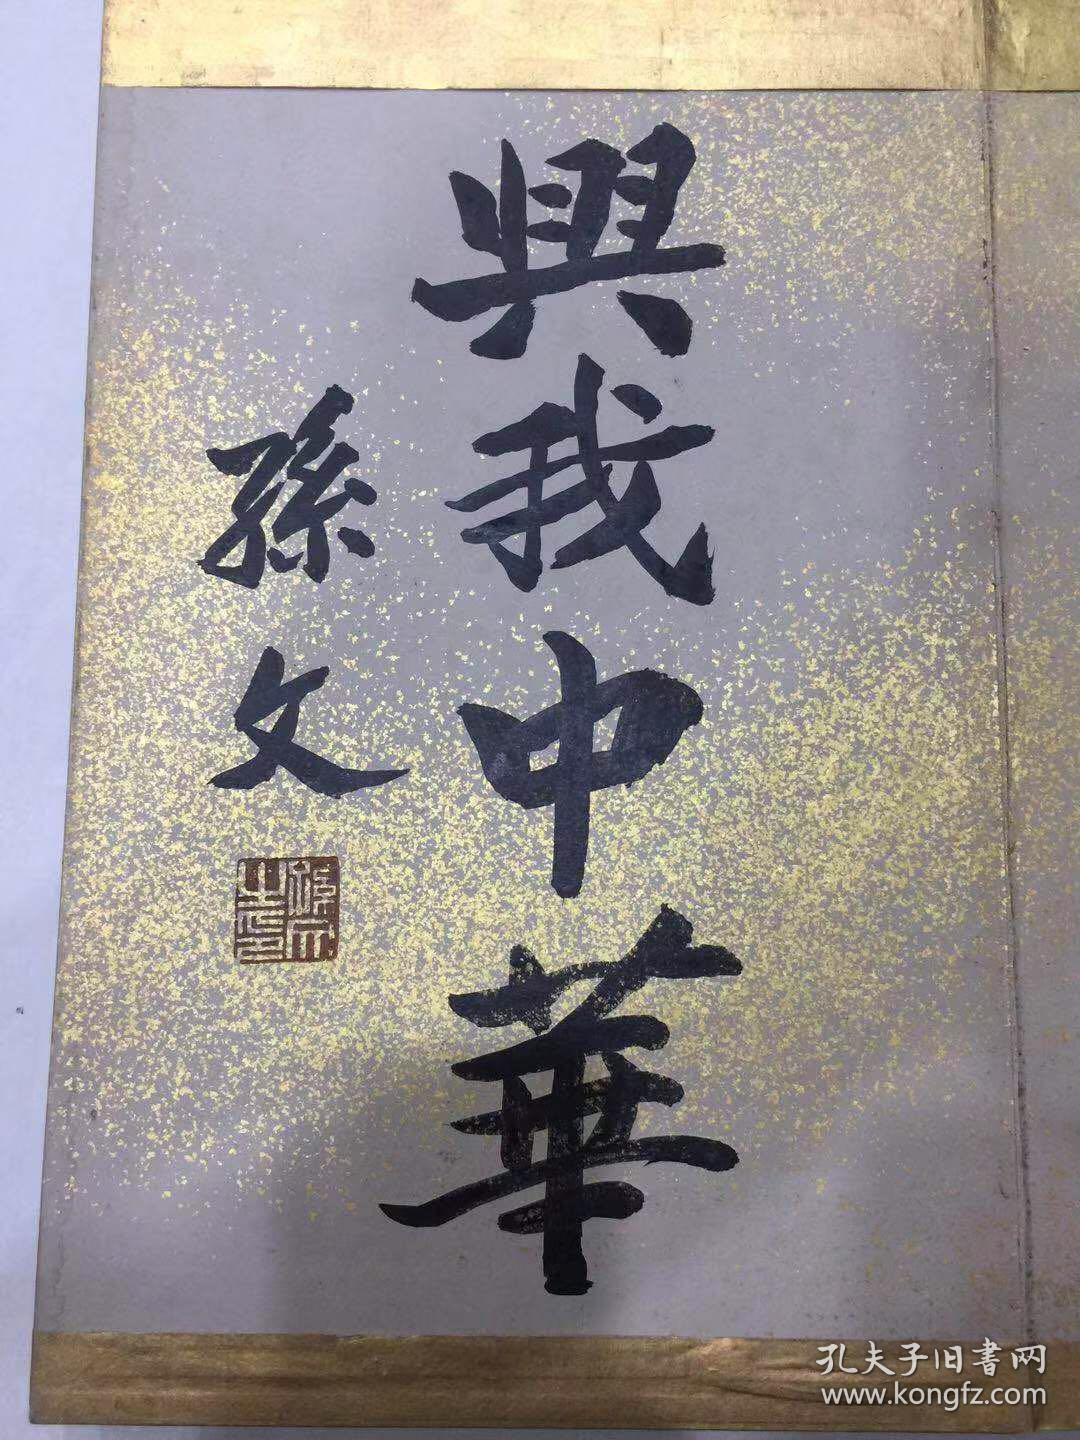 興我中華
孫文
孫文之印
孔夫子旧書网
www.kongfz.com